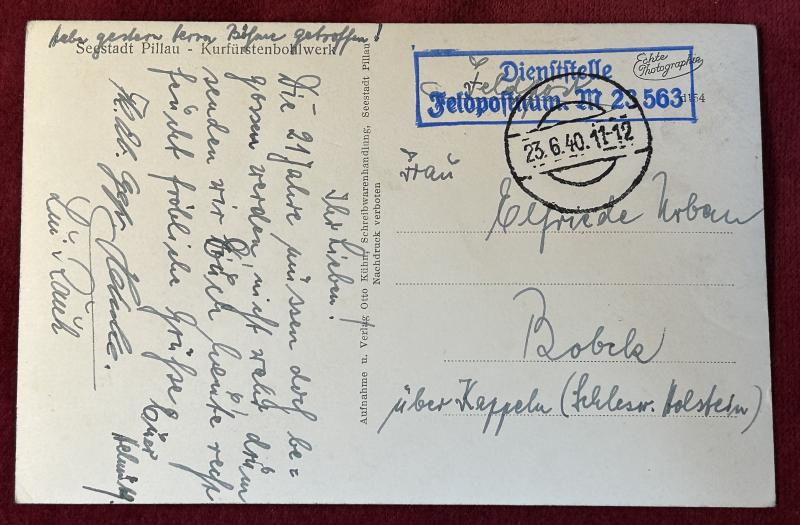 Habe gestern Herrn Böhme getroffen!
Seestadt Pillau - Kurfürstenbohlwerk
Ihr Lieben!
Die 21 Jahre müssen doch be=
gossen werden, nicht wahr, drum
senden wir Euch heute recht
feucht fröhliche Grüße
Euer
Helmut
Aufnahme u. Verlag Otto Kühn, Schreibwarenhandlung, Seestadt Pillau
Nachdruck verboten
Feldpost
Dienststelle
Feldpostnum. M 23 563
Echte
Photographie
1154
23.6.40.11-12
Frau
Elfriede Urban
Bobek
über Kappeln (Schlesw. Holstein)